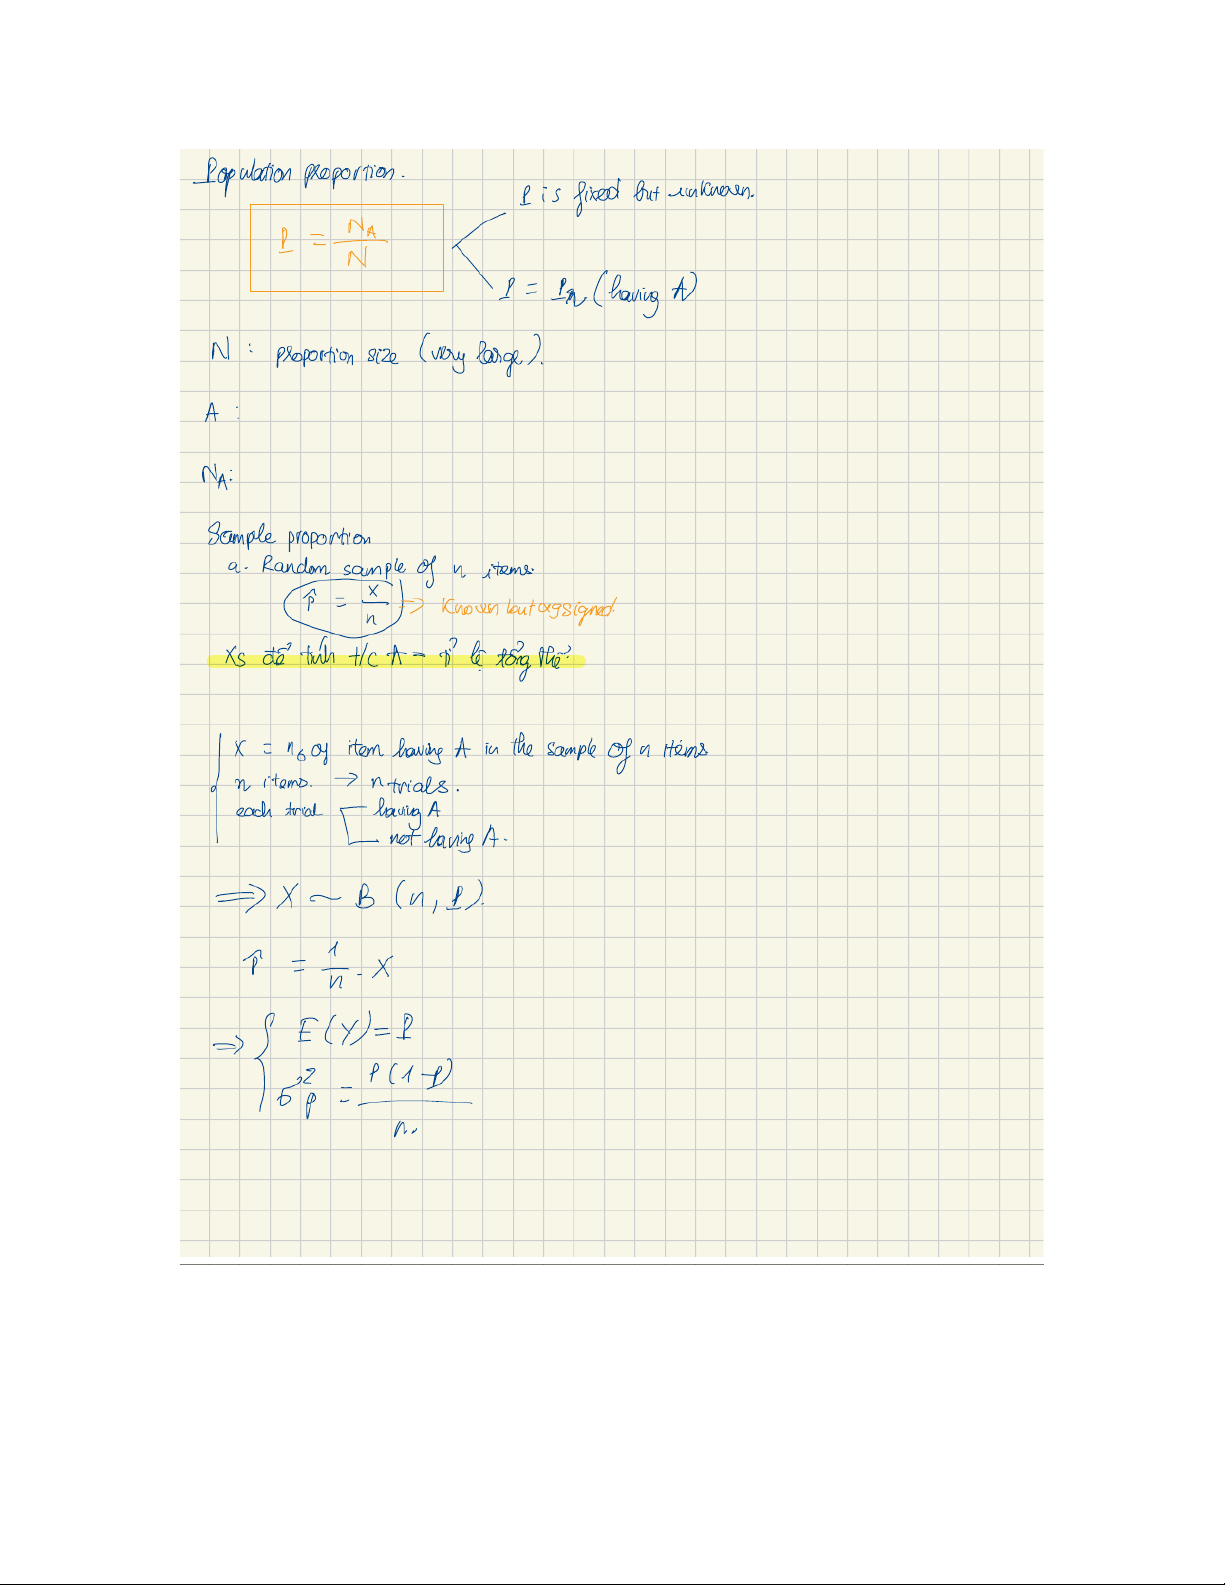 Population proportion.
P is fixed but unknown.
P = N_A / N
P = Pr (having A)
N : proportion size (very large).
A :
N_A:
Sample proportion
a. Random sample of n items.
p̂ = x / n → Known but
XS để tính t/c A = tỉ lệ tổng thể
X = no of item having A in the sample of n items
n items. → n trials.
each trial having A
not having A.
⇒ X ~ B (n, P).
p̂ = 1/n . X
⇒ { E(Y) = P
σ²p = P(1-P) / n.